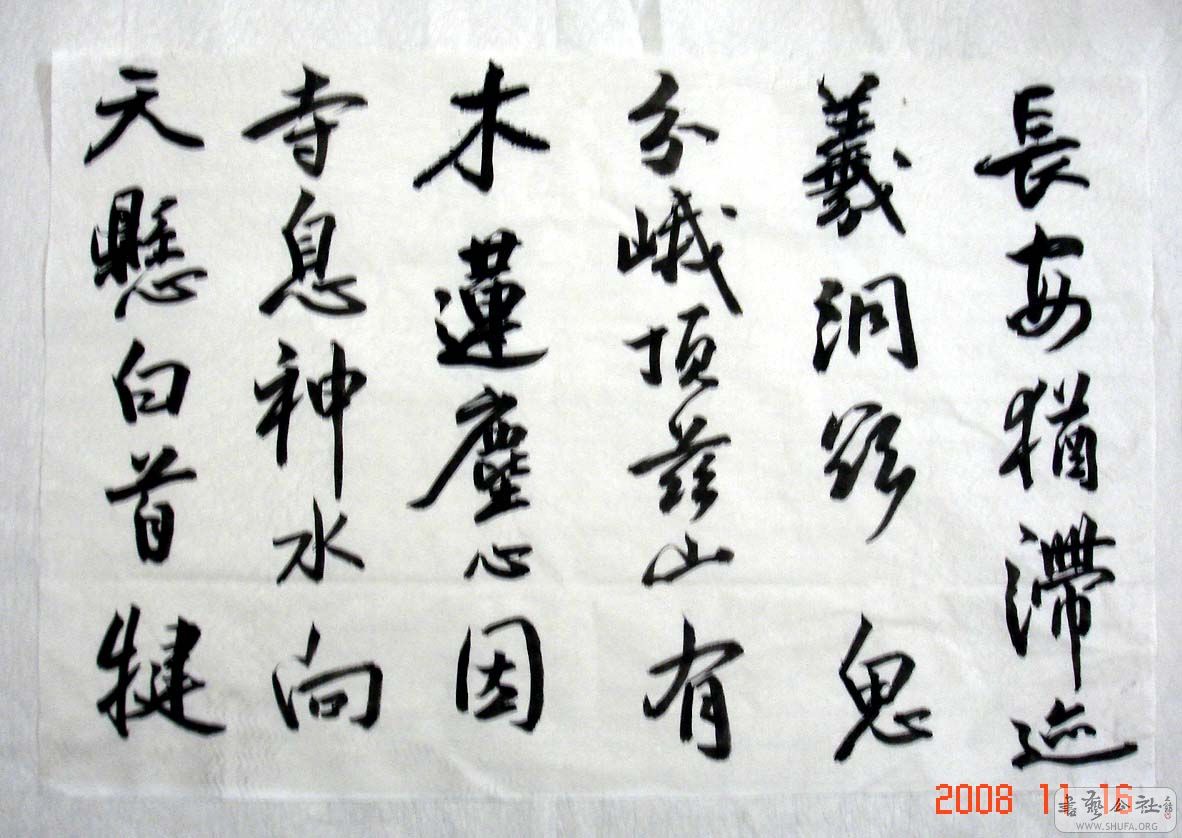 長安猶滯迹
羲洞鬼
分峨頂茲山有
木蓮塵心因
寺息神水向
天懸白首犍
2008 11 16
書藝公社
WWW.SHUFA.ORG